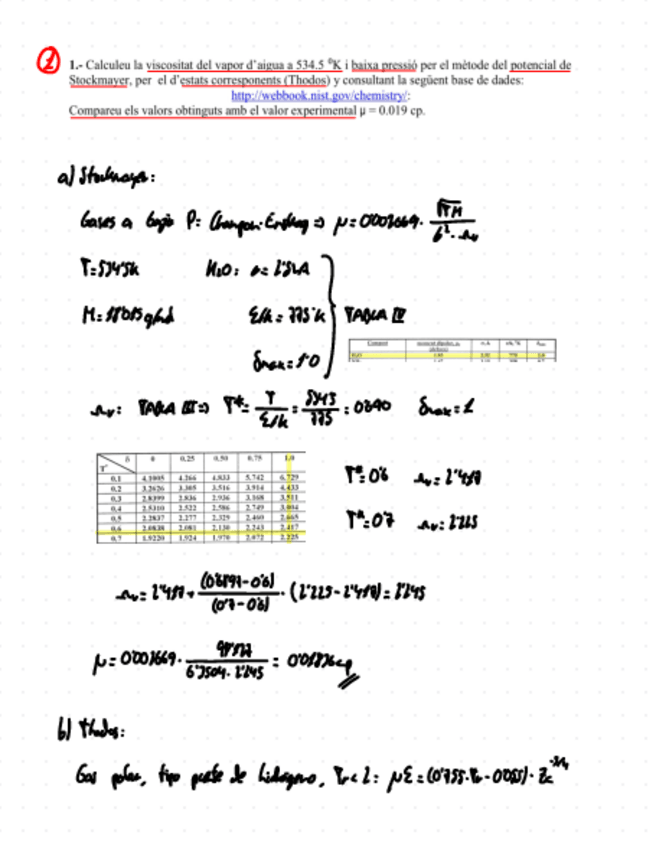 1
1.- Calculeu la viscositat del vapor d'aigua a 534.5 ⁰K i baixa pressió per el mètode del potencial de
Stockmayer, per el d'estats corresponents (Thodos) y consultant la següent base de dades:
http://webbook.nist.gov/chemistry/:
Compareu els valors obtinguts amb el valor experimental μ = 0.019 cp.
a) Stockmayer:
Gases a baja P: Chapman-Enskog ⇒ μ = 0'002669 · √TM / σ² · Ωv
T = 534'5k H₂O: σ = 2'52A
M = 18'015 g/mol ε/k = 775 k TABLA IV
δmax = 1'0
Ωv: TABLA III ⇒ T* = T / ε/k = 534'5 / 775 = 0'690 δmax = 1
T* δ 0 0,25 0,50 0,75 1,0
0,1 4.266 4.833 5.742 6.729
0,2 3.305 3.516 3.914 4.433
0,3 2.836 2.936 3.168 3.511
0,4 2.522 2.586 2.749 3.004
0,5 2.277 2.329 2.460 2.665
0,6 2.081 2.130 2.243 2.417
0,7 1.924 1.970 2.072 2.225
T* = 0'6 Ωv = 2'417
T* = 0'7 Ωv = 2'225
Ωv = 2'417 + (0'6897 - 0'6) / (0'7 - 0'6) · (2'225 - 2'417) = 2'245
μ = 0'002669 · / 6'3504 · 2'245 = cp
b) Thodos:
Gas polar, tipo puente de hidrógeno, Tr < 2: με = (0'755 · Tr - 0'055) · Zc^-5/4